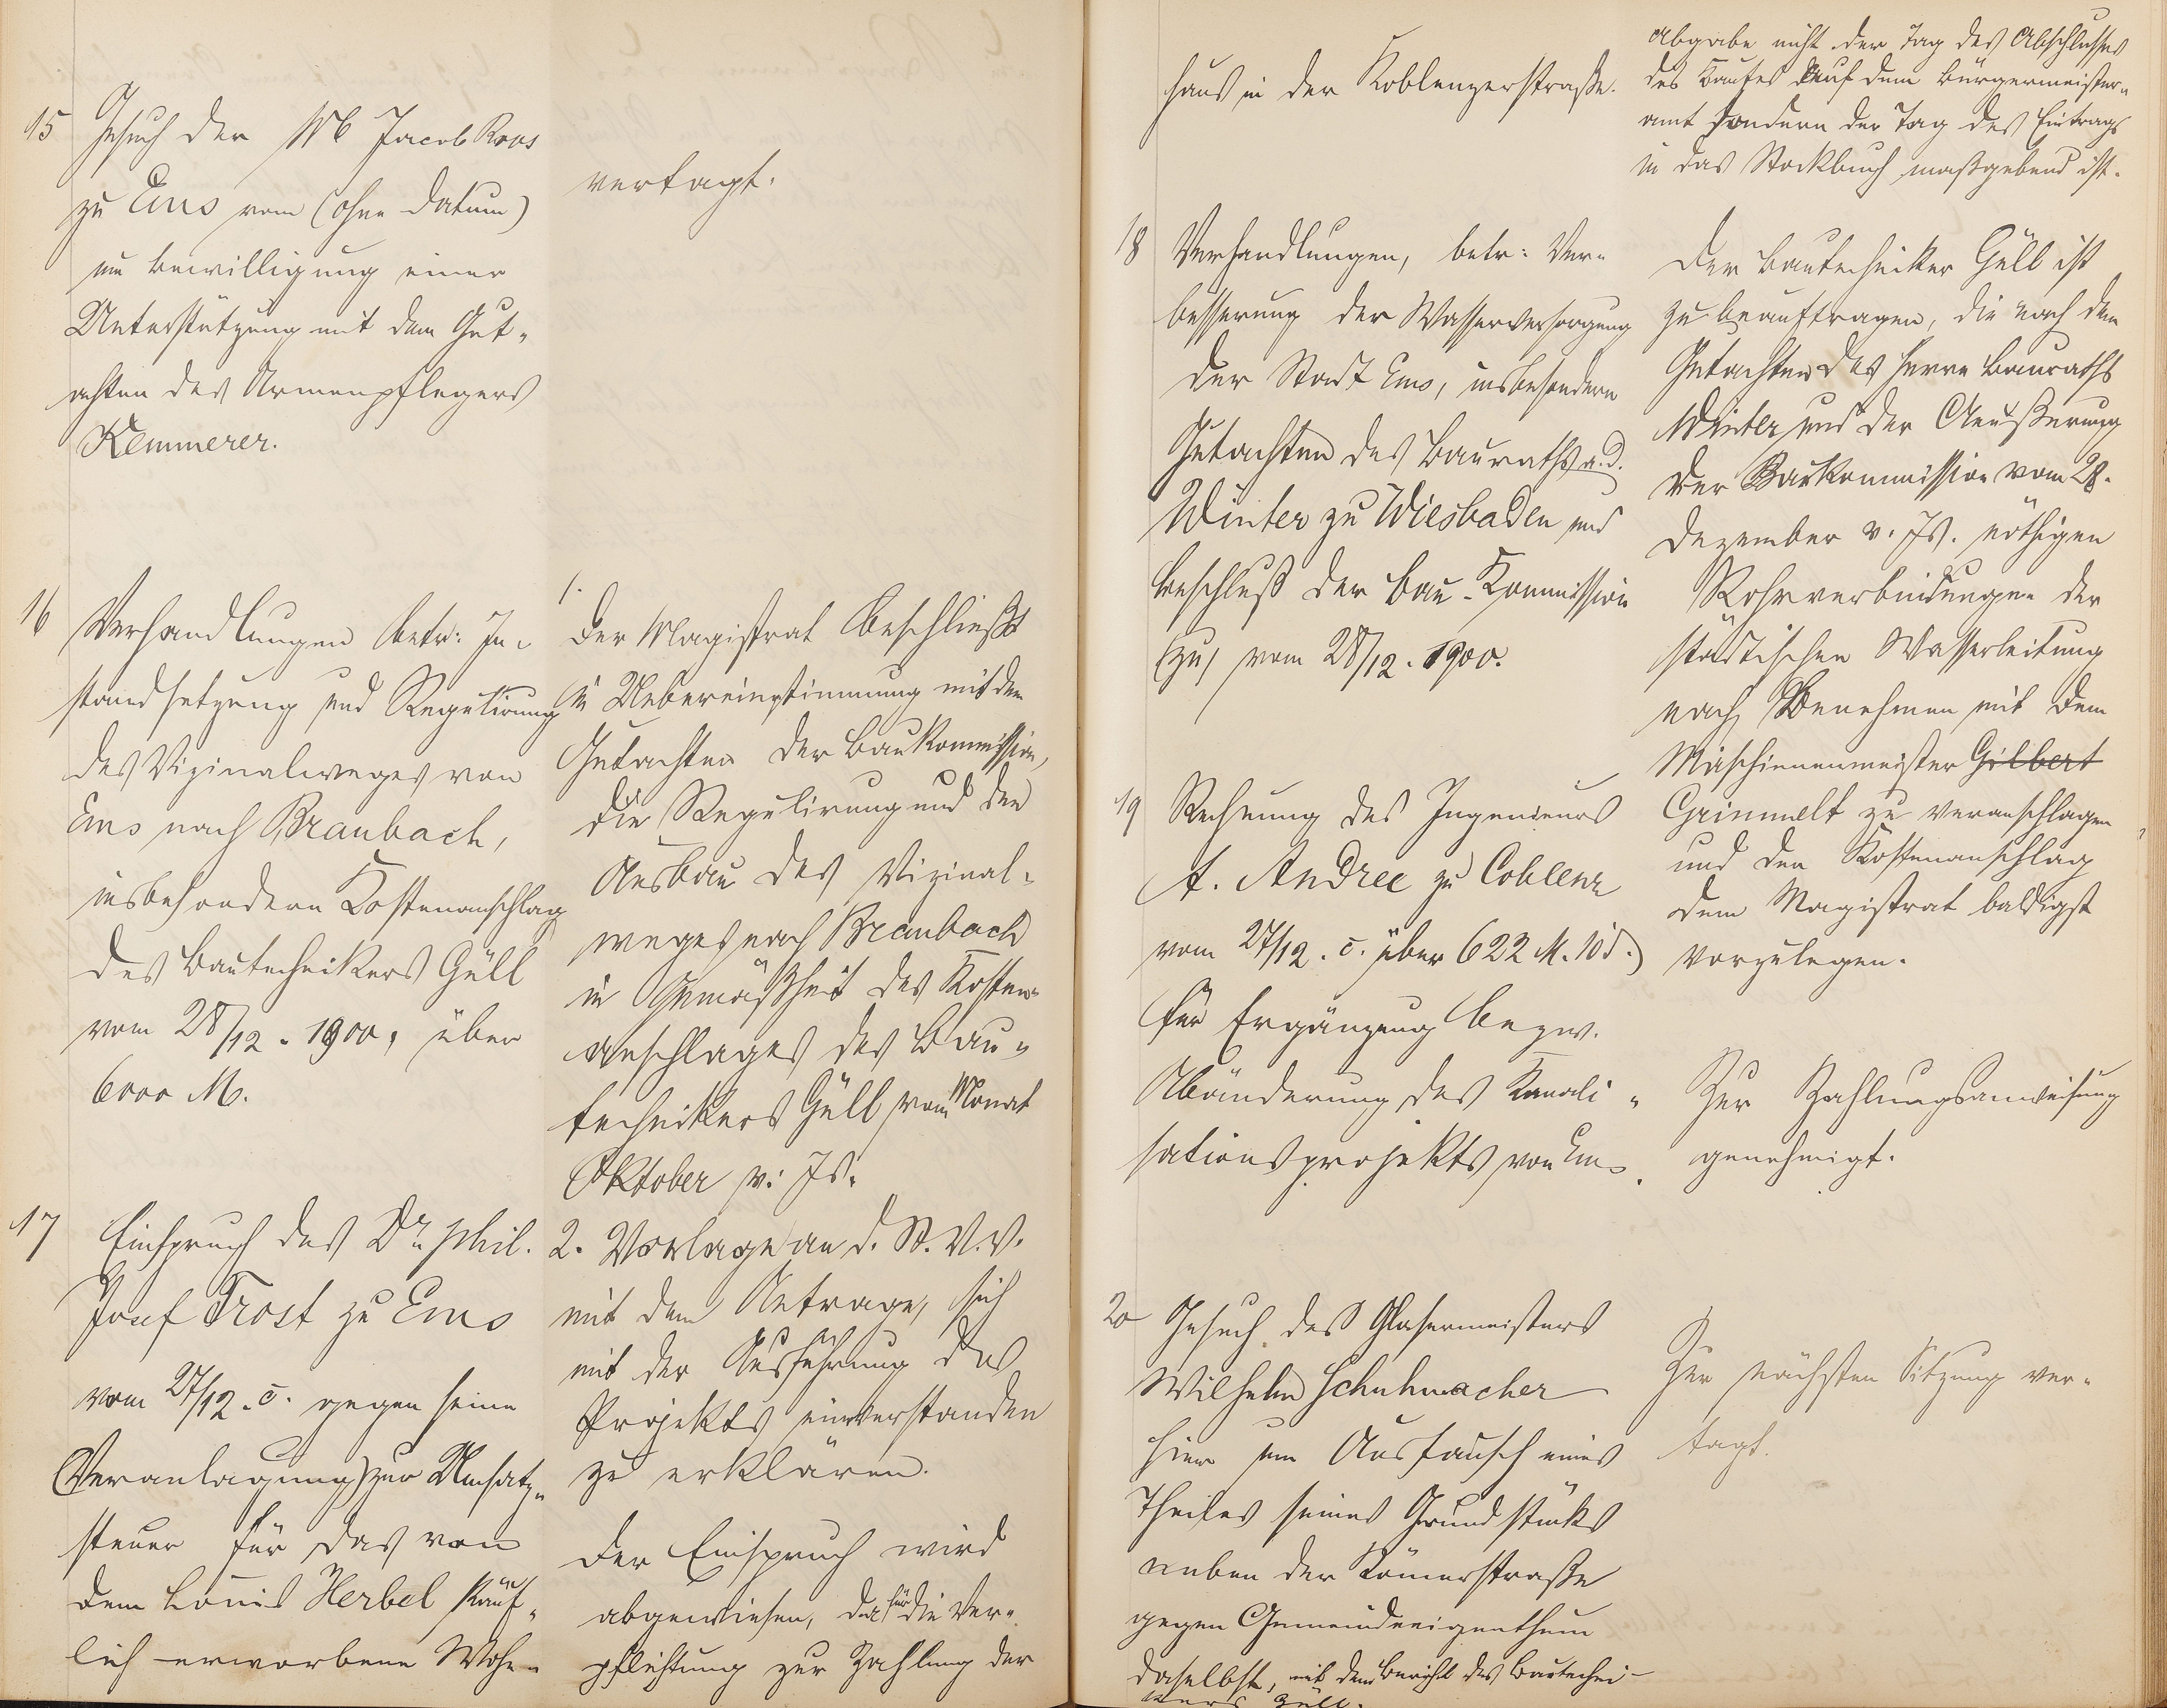 15 Gesuch der Wb Jacob Roos
zu Ems vom (ohne Datum)
um Bewilligung einer
Unterstützung mit dem Gut-
achten des Armenpflegers
Kemmerer.
vertagt.
16 Verhandlungen betr: In-
standsetzung und Regulirung
des Vizinalweges von
Ems nach Braubach,
insbesondere Kostenanschlag
des Bautechnikers Güll
vom 28/12. 1900, über
6000 M.
1.
Der Magistrat beschließt
in Uebereinstimmung mit dem
Gutachten der Baukommission,
die Regulirung und den
Ausbau des Vizinal-
weges nach Braubach
in Gemäßheit des Kosten-
anschlages des Bau-
technikers Güll vom Monat
Oktober v. Js.
2. Vorlage an d. St. V. V.
mit dem Antrage, sich
mit der Ausführung des
Projekts einverstanden
zu erklären.
17 Einspruch des Dr. phil.
Josef Trost zu Ems
vom 27/12. c. gegen seine
Veranlagung zur Umsatz-
steuer für das von
dem Louis Herbel käuf-
lich erworbene Wohn-
Der Einspruch wird
abgewiesen, da für die Ver-
pflichtung zur Zahlung der
haus in der Koblenzerstraße.
Abgabe nicht der Tag des Abschlusses
des Kaufes auf dem Bürgermeister-
amt sondern der Tag des Eintrags
in das Stockbuch maßgebend ist.
18 Verhandlungen, betr: Ver-
besserung der Wasserversorgung
der Stadt Ems, insbesondere
Gutachten des Bauraths a. d.
Winter zu Wiesbaden und
Beschluß der Bau-Kommission
(zu) vom 28/12. 1900.
Der Bautechniker Güll ist
zu beauftragen, die nach dem
Gutachten des Herrn Bauraths
Winter und der Aeußerung
der Baukommission vom 28.
Dezember v. Js. nöthigen
Rohrverbindungen der
städtischen Wasserleitung
nach Benehmen mit dem
Maschinenmeister Gilbert
Grimmelt zu veranschlagen
und den Kostenanschlag
dem Magistrat baldigst
vorzulegen.
19 Rechnung des Ingenieurs
A. Andree zu Coblenz
vom 27/12. c. über 622 M. 10 d.)
für Ergänzung bezw.
Abänderung des Kanali-
sationsprojekts von Ems.
Zur Zahlungsanweisung
genehmigt.
20 Gesuch des Glasermeisters
Wilhelm Schuhmacher
hier um Austausch eines
Theiles seines Grundstücks
neben der Römerstraße
gegen Gemeindeeigenthum
daselbst, mit dem Bericht des Bautechni-
kers Güll.
Zur nächsten Sitzung ver-
tagt.